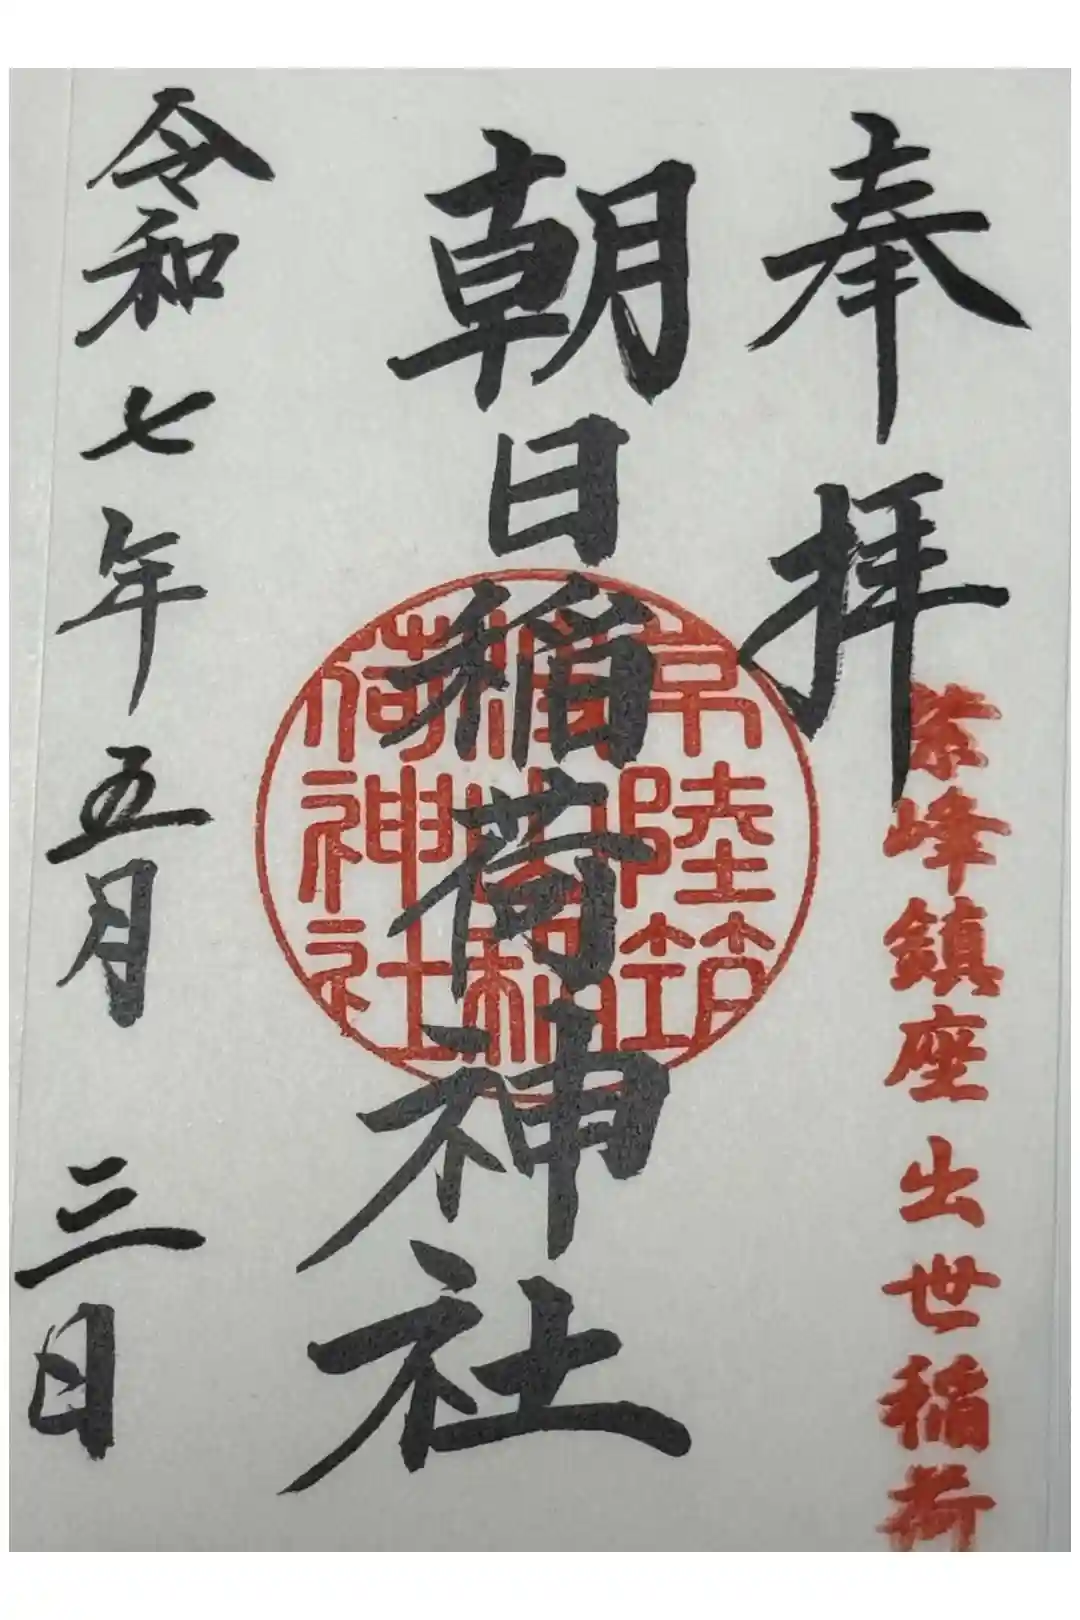 奉拝
紫峰鎮座 出世稲荷
朝日稲荷神社
常陸筑
波山稲
荷神社
令和七年五月三日